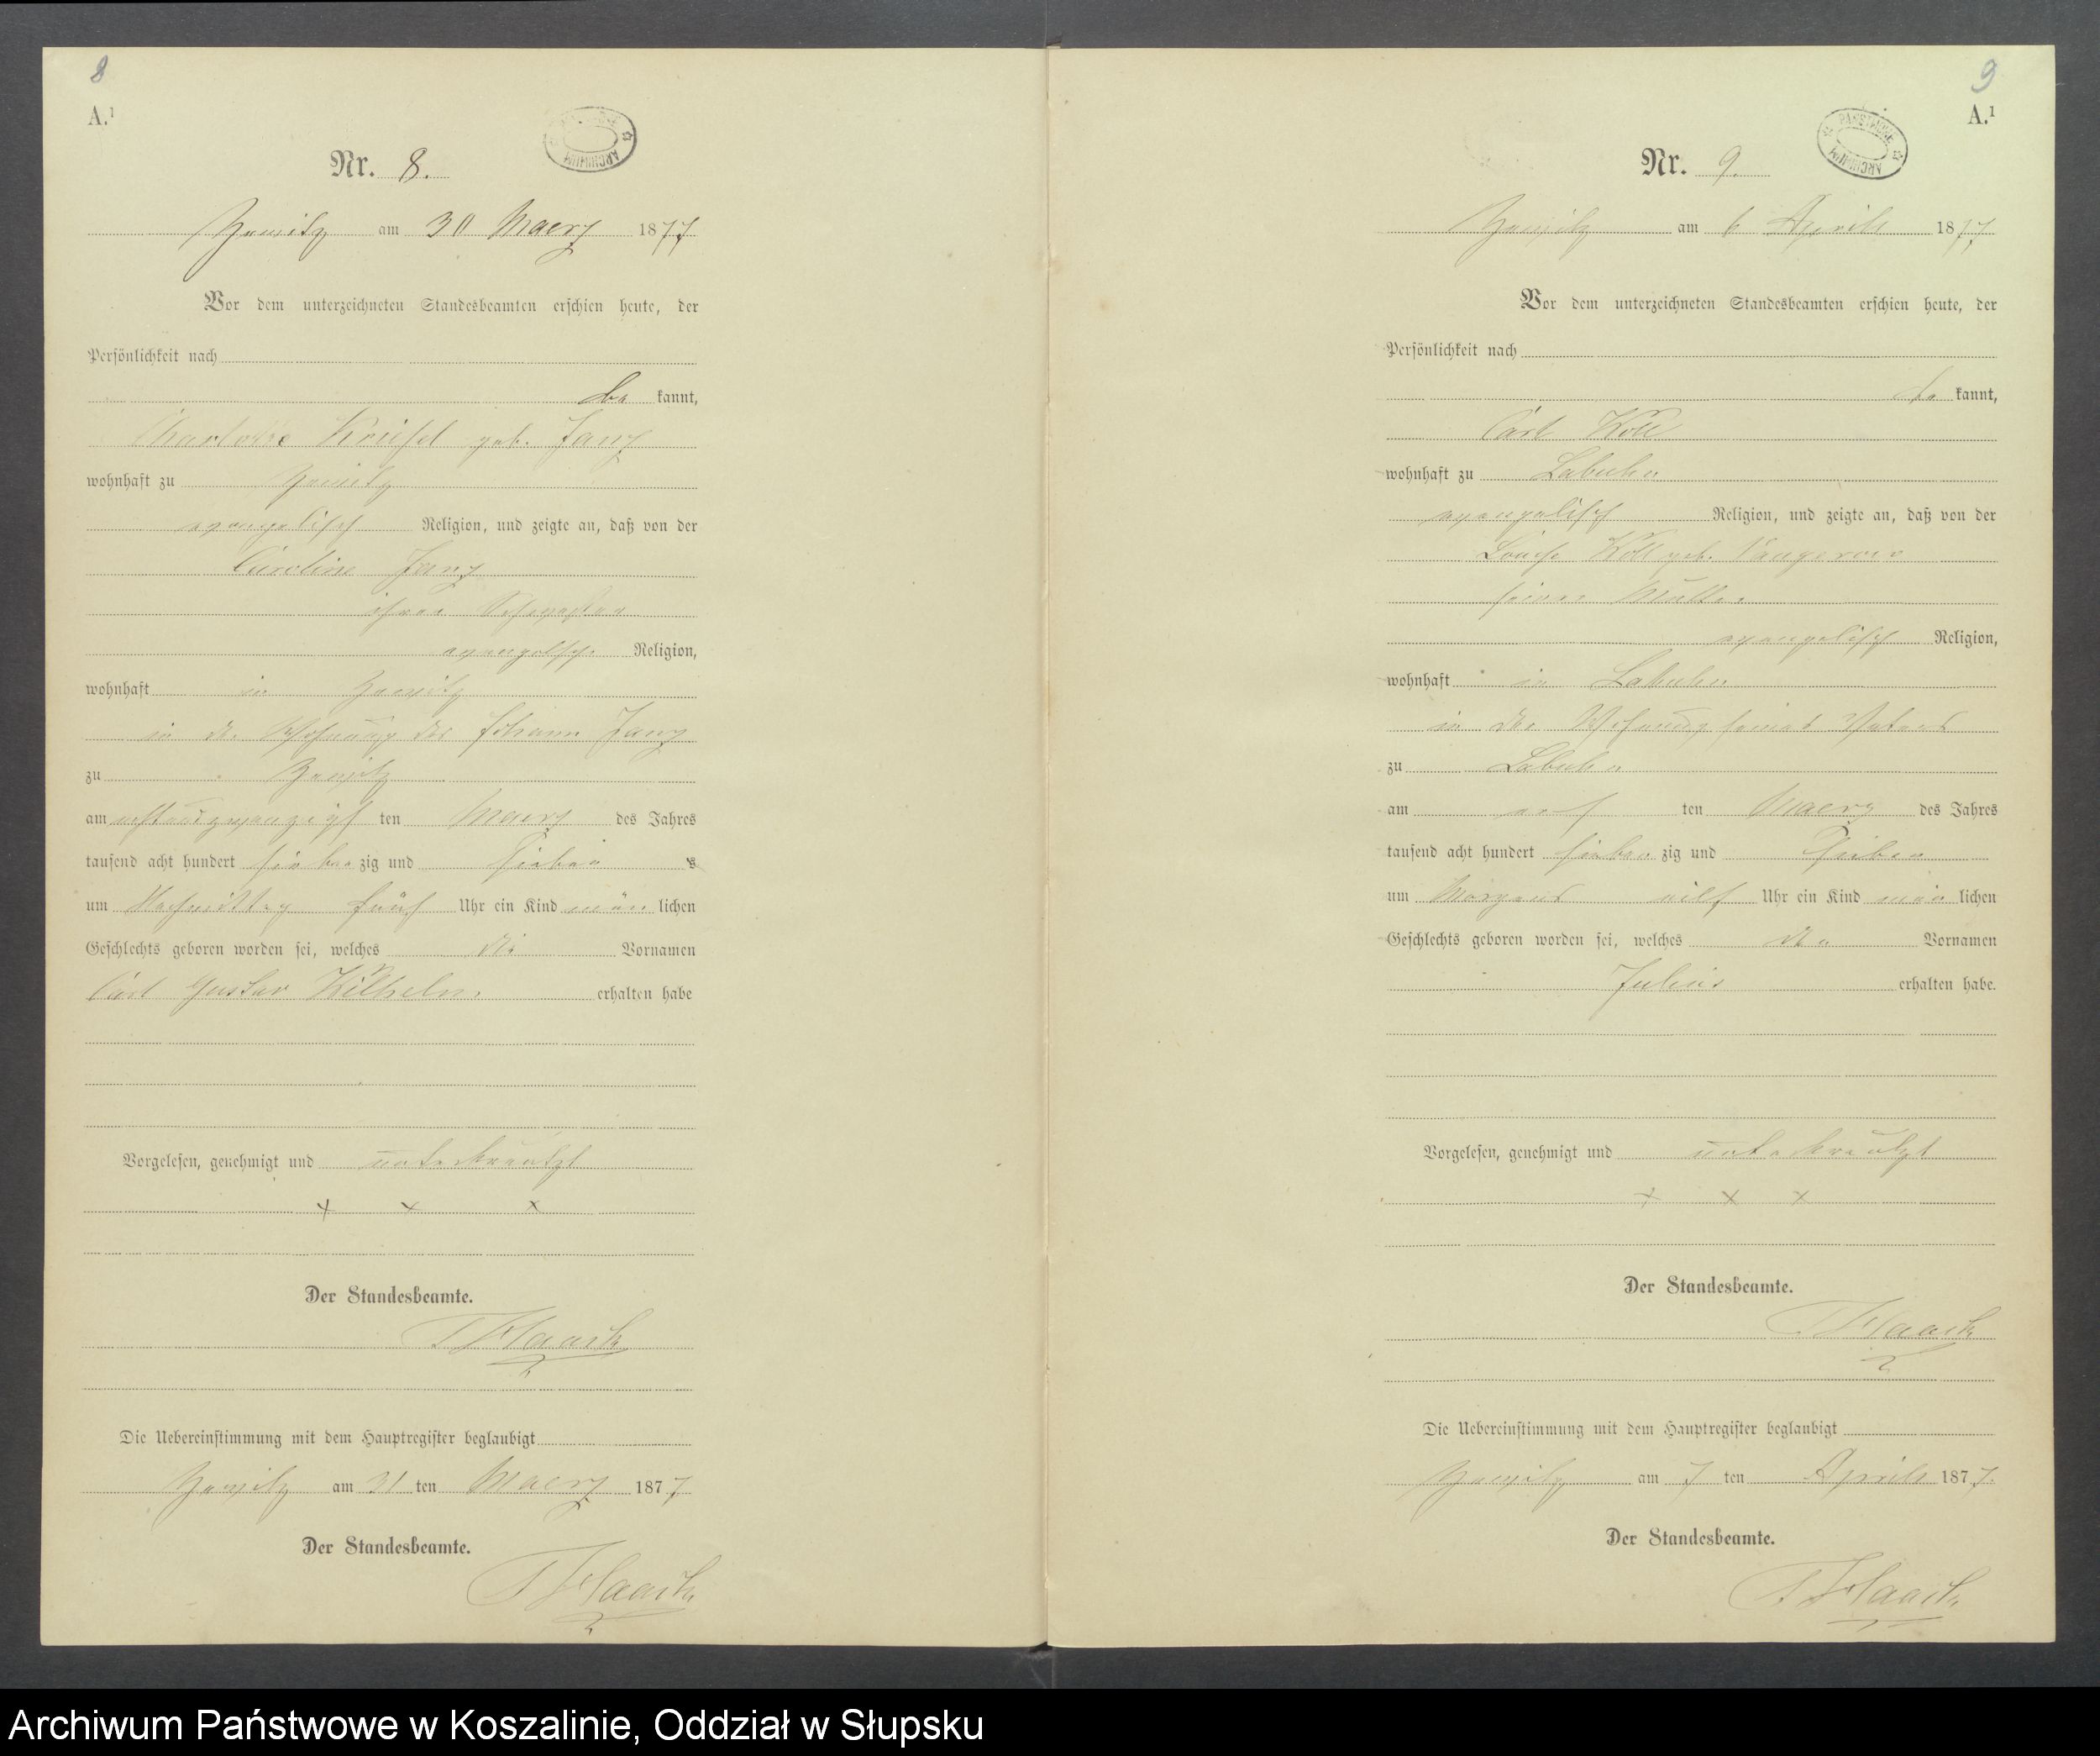 8
A.¹
Nr. 8.
Zewitz am 30 Maerz 1877
Vor dem unterzeichneten Standesbeamten erschien heute, der
Persönlichkeit nach
be kannt,
Charlotte geb. Janz
wohnhaft zu Zewitz
evangelisch Religion, und zeigte an, daß von der
Caroline Janz
ihrer Schwester
evangelsch. Religion,
wohnhaft in Zewitz
in der Wohnung des Johann Janz
zu Zewitz
am achtundzwanzigs ten Maerz des Jahres
tausend acht hundert sieben zig und sieben
um Nachmittag fünf Uhr ein Kind män lichen
Geschlechts geboren worden sei, welches die Vornamen
Carl Gustav Wilhelm erhalten habe
Vorgelesen, genehmigt und unterkreutzt
+ × ×
Der Standesbeamte.
Haack
Die Uebereinstimmung mit dem Hauptregister beglaubigt
Zewitz am 31 ten Maerz 1877
Der Standesbeamte.
Haack
9
A.¹
PAŃSTWOWE
ARCHIWUM
Nr. 9.
Zewitz am 6 April 1877
Vor dem unterzeichneten Standesbeamten erschien heute, der
Persönlichkeit nach
be kannt,
Carl Koll
wohnhaft zu Labuhn
evangelisch Religion, und zeigte an, daß von der
Louise Koll geb.
seiner Mutter
evangelisch Religion,
wohnhaft in Labuhn
in der Wohnung seines Vaters
zu Labuhn
am ten Maerz des Jahres
tausend acht hundert sieben zig und sieben
um Morgens eilf Uhr ein Kind män lichen
Geschlechts geboren worden sei, welches den Vornamen
Julius erhalten habe.
Vorgelesen, genehmigt und unterkreutzt
+ × ×
Der Standesbeamte.
Haack
Die Uebereinstimmung mit dem Hauptregister beglaubigt
Zewitz am 7 ten April 1877.
Der Standesbeamte.
Haack
Archiwum Państwowe w Koszalinie, Oddział w Słupsku